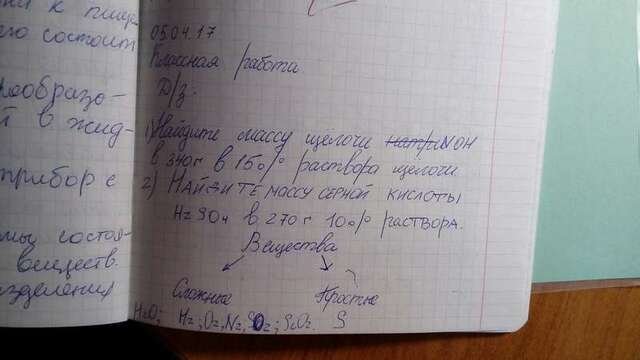 ни к пище
его состоит
реобразо-
й в жид-
прибор с
состоя-
веществ.
зделения
05.04.17
Классная работа
Д/з.
1) Найдите массу щелочи NOH
в 340г в 15% раствора щелочи
2) НАЙДИТЕ МАССУ СЕРНОЙ КИСЛОТЫ
H2SO4 в 270г 10% раствора.
Вещества
Сложные Простые
H2O; H2; O2, N2, SO2; S